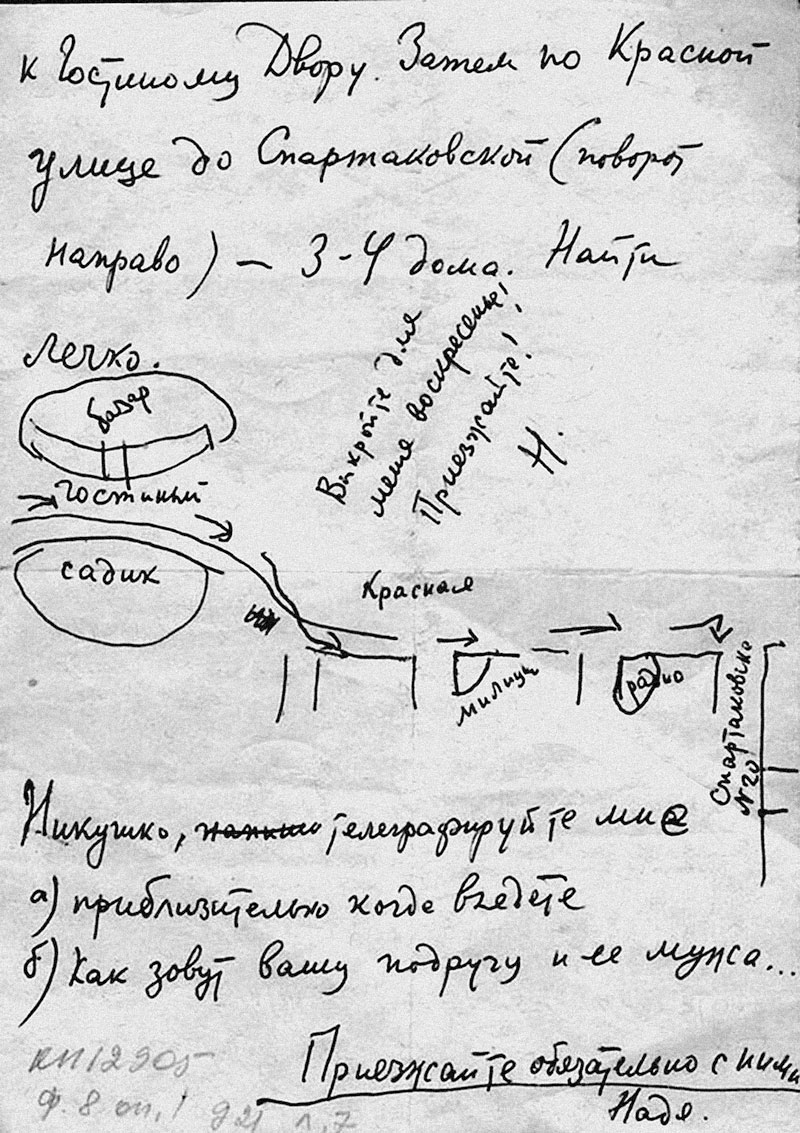 к Гостиному Двору. Затем по Красной
улице до Спартаковской (поворот
направо) — 3-4 дома. Найти
легко.
Выкройте для
меня воскресенье!
Приезжайте!
Н.
базар
Гостиный
садик
Красная
милиция
радио
Спартаковско
№20
Никушко, телеграфируйте мне
а) приблизительно когда въедете
б) Как зовут вашу подругу и ее мужа...
Приезжайте обязательно с ними
Надя.
КП12905
Ф. 8 оп. 1 д 21 л. 7